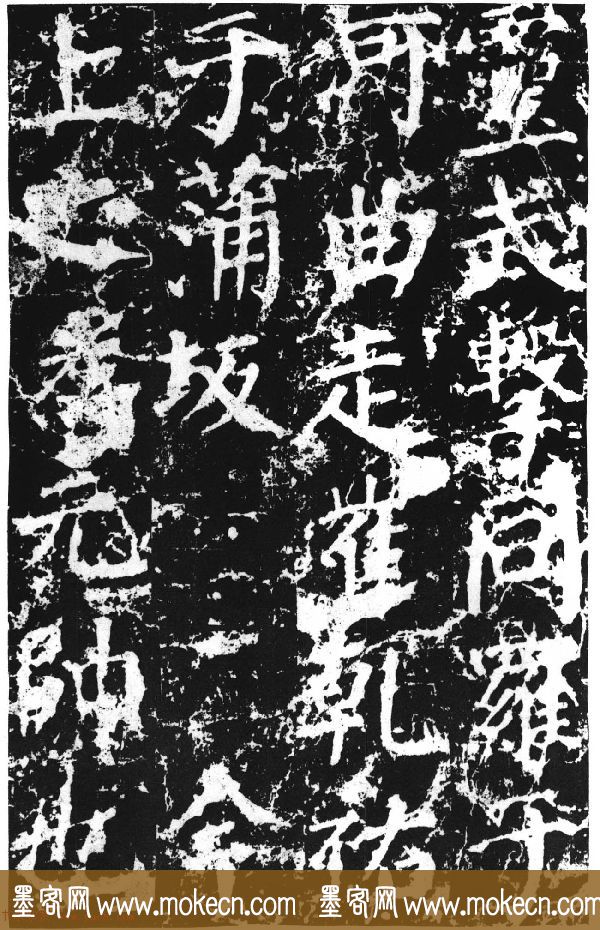 靈武擊同羅于
河曲走崔乾祐
于蒲坂今
上之爲元帥也
墨客网 www.mokecn.com 墨客网 www.mokecn.com